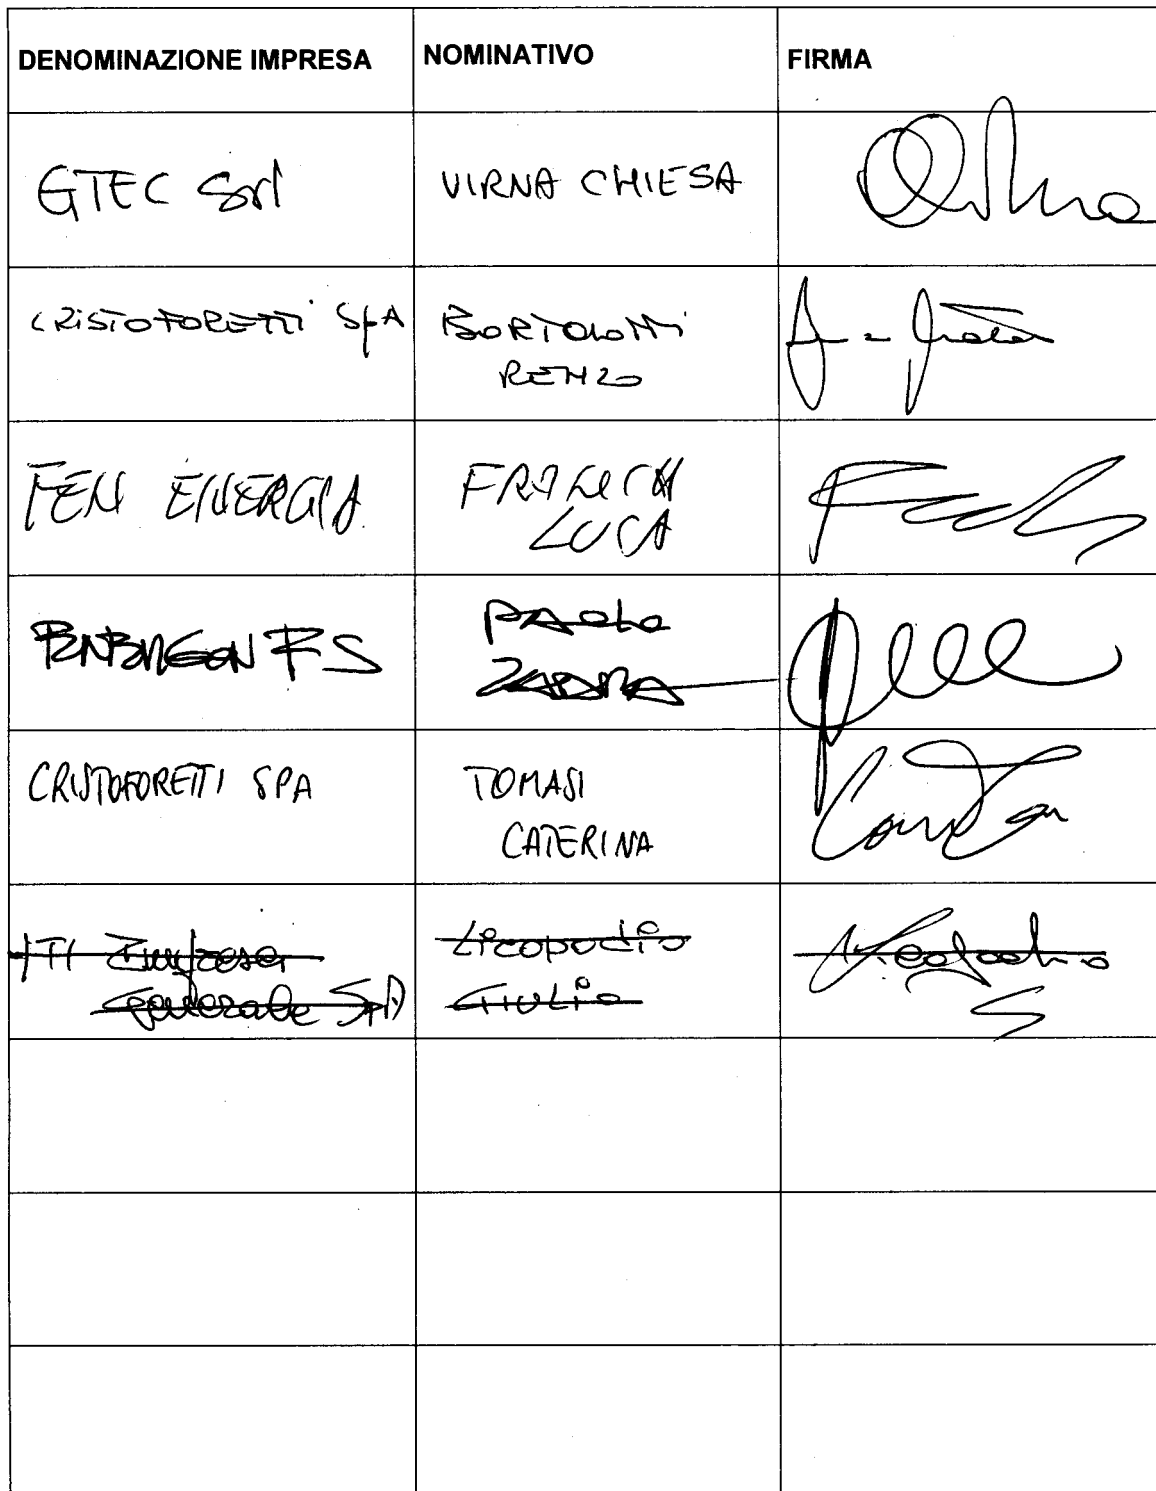 DENOMINAZIONE IMPRESA NOMINATIVO FIRMA
GTEC Srl VIRNA CHIESA
CRISTOFORETTI SpA BORTOLOTTI
RENZO
FEN ENERGIA FRANCH
LUCA
PAOLO
CRISTOFORETTI SPA TOMASI
CATERINA
ITI Impresa Licopodio
Generale SpA Giulio